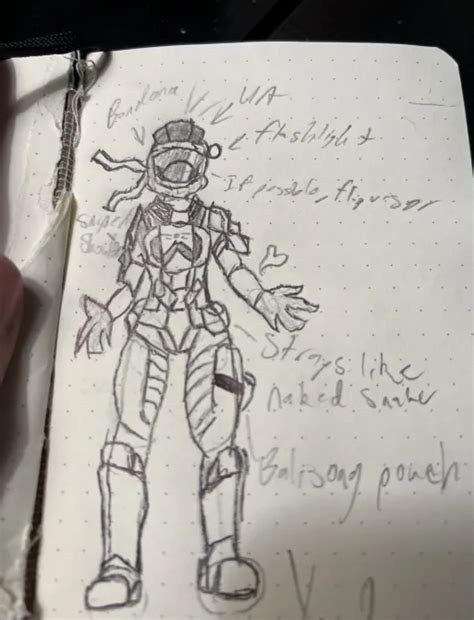 Bandana
UA
flashlight
If possible, flip visor
Sniper
Straps like
naked snake
Balisong pouch
V.